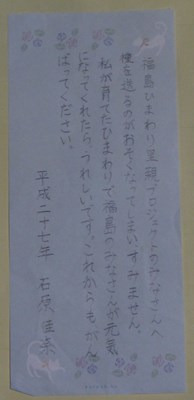 福島ひまわり里親プロジェクトのみなさんへ
種を送るのがおそくなってしまいすみません。
私が育てたひまわりで福島のみなさんが元気
になってくれたら、うれしいです。これからもがん
ばってください。
平成二十七年 石原